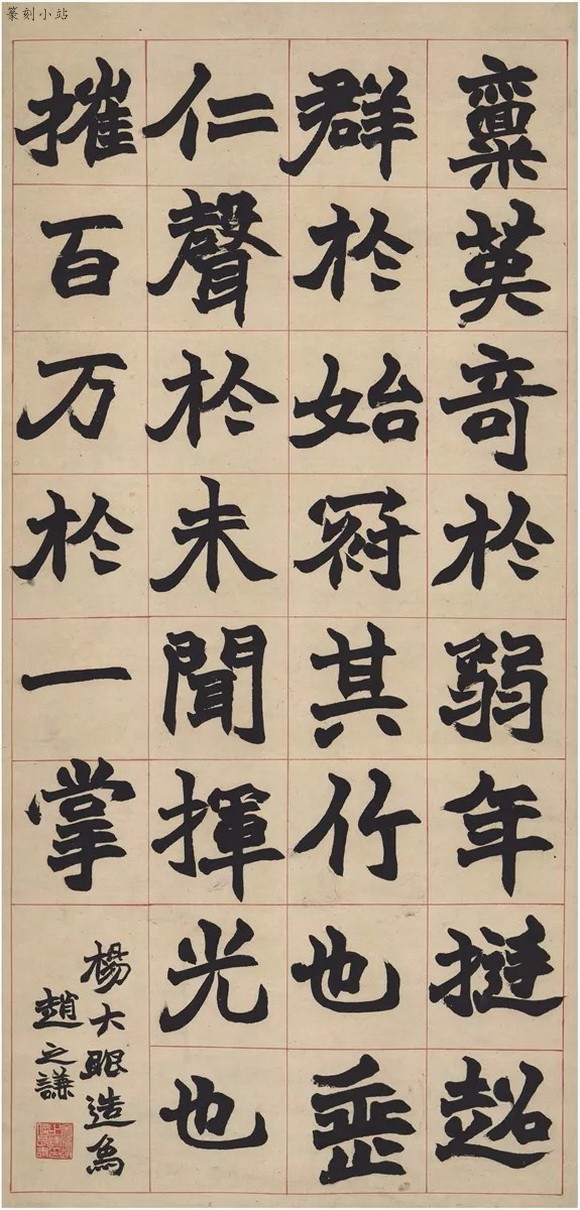 篆刻小站
稟英奇於弱年挺超
群於始冠其行也垂
仁聲於未聞揮光也
摧百万於一掌
楊大眼造象
趙之謙